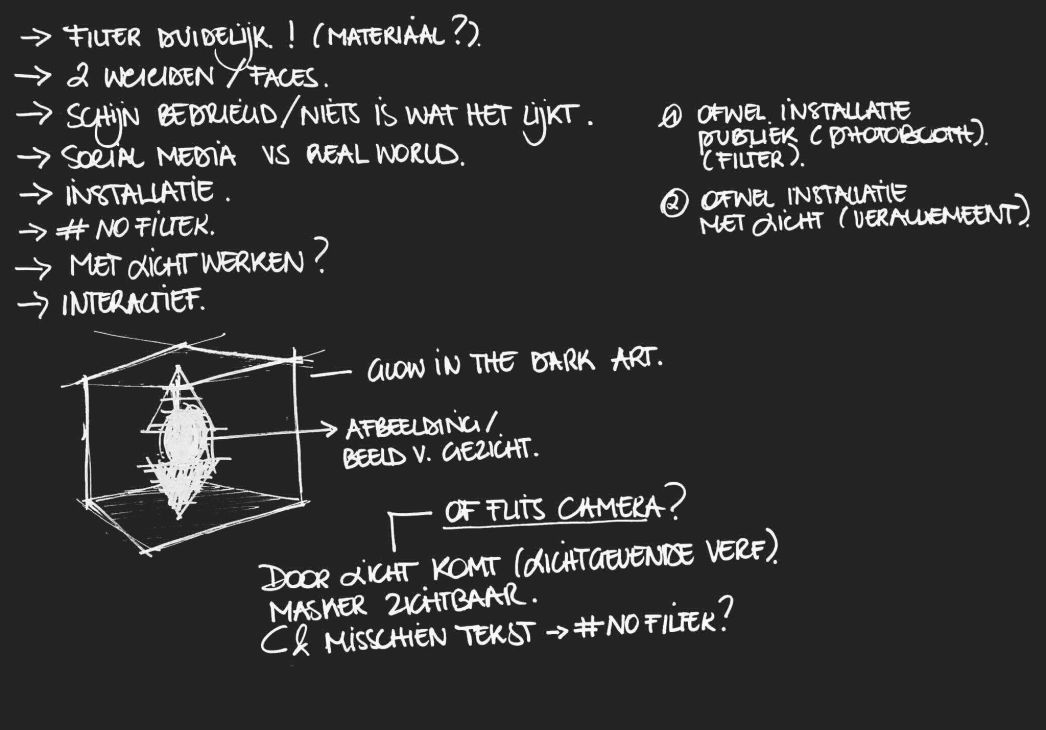 → FILTER DUIDELIJK. ! (MATERIAAL?).
→ 2 / FACES.
→ SCHIJN BEDRIEGD/NIETS IS WAT HET LIJKT.
→ SOCIAL MEDIA VS REAL WORLD.
→ INSTALLATIE.
→ #NO FILTER.
→ MET LICHT WERKEN?
→ INTERACTIEF.
① OFWEL INSTALLATIE
PUBLIEK (PHOTOBOOTH).
(FILTER).
② OFWEL INSTALLATIE
MET LICHT (VERALGEMEENT).
GLOW IN THE DARK ART.
→ AFBEELDING/
BEELD V. GEZICHT.
OF FLITS CAMERA?
DOOR LICHT KOMT (LICHTGEVENDE VERF).
MASKER ZICHTBAAR.
(& MISSCHIEN TEKST → #NO FILTER?